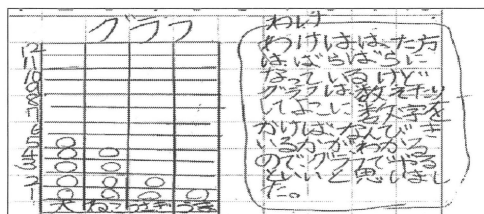 グラフ
12
11
10
9
8
7
6
5
4
3
2
1
犬
ねこ
うさぎ
うま
わけ
わけはは、た方
はばらばらに
なっているけど
グラフは数えたり
してよこに数字を
かけばなんびき
いるかがわかる
のでグラフでやる
といいと思いまし
た。